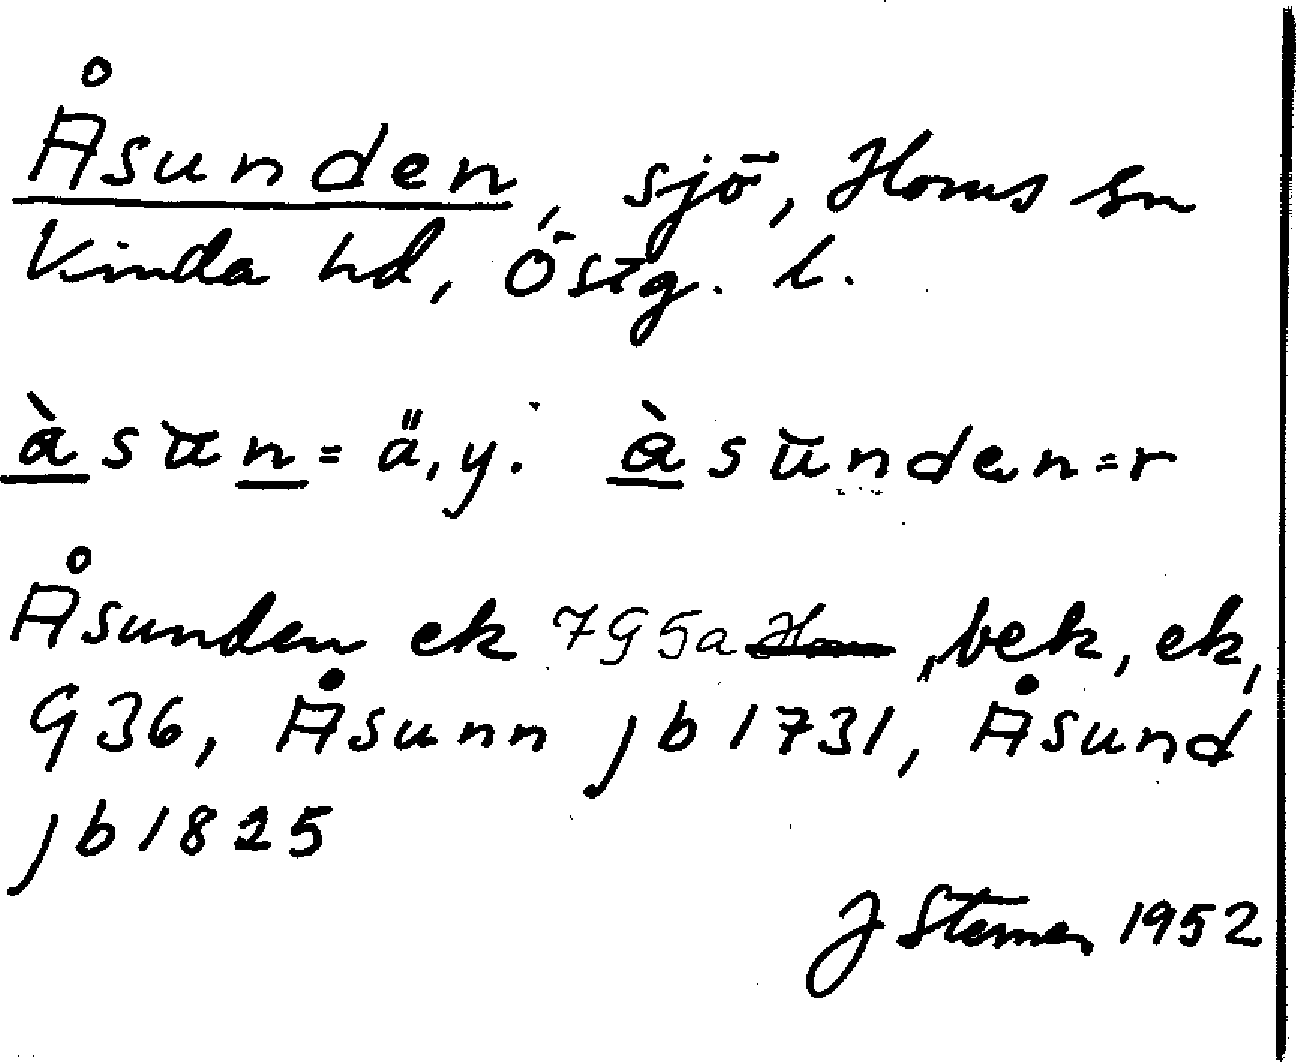 Åsunden, sjö, Horns sn
Kinda hd, Östg. l.
àsūn = ä, y. àsūnden = r
Åsunden ek 795a Horn, bek, ek,
G36, Åsunn jb 1731, Åsund
jb 1825
J Stemer 1952